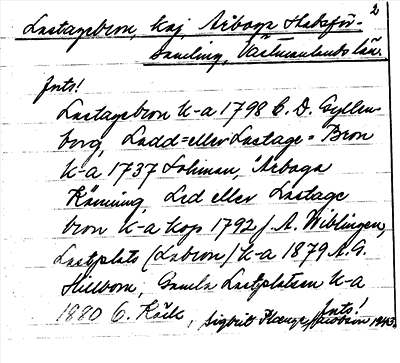 2
Lastagebron, kaj, Arboga Stadsför-
samling, Västmanlands län.
Jnts!
Lastagebron K-a 1798 C. D. Gyllen
borg, Ladd= eller Lastage= Bron
K-a 1737 Lohman, Arboga
Känning, Led eller Lastage
bron K-a kop 1792 / A. Wiblingen,
Lastplats (Labron) K-a 1879 A.G.
Hillbom, Gamla Lastplatsen K-a
1880 C. Köök,
Jnts!
Sigbrit Plænge Jacobson 1943.